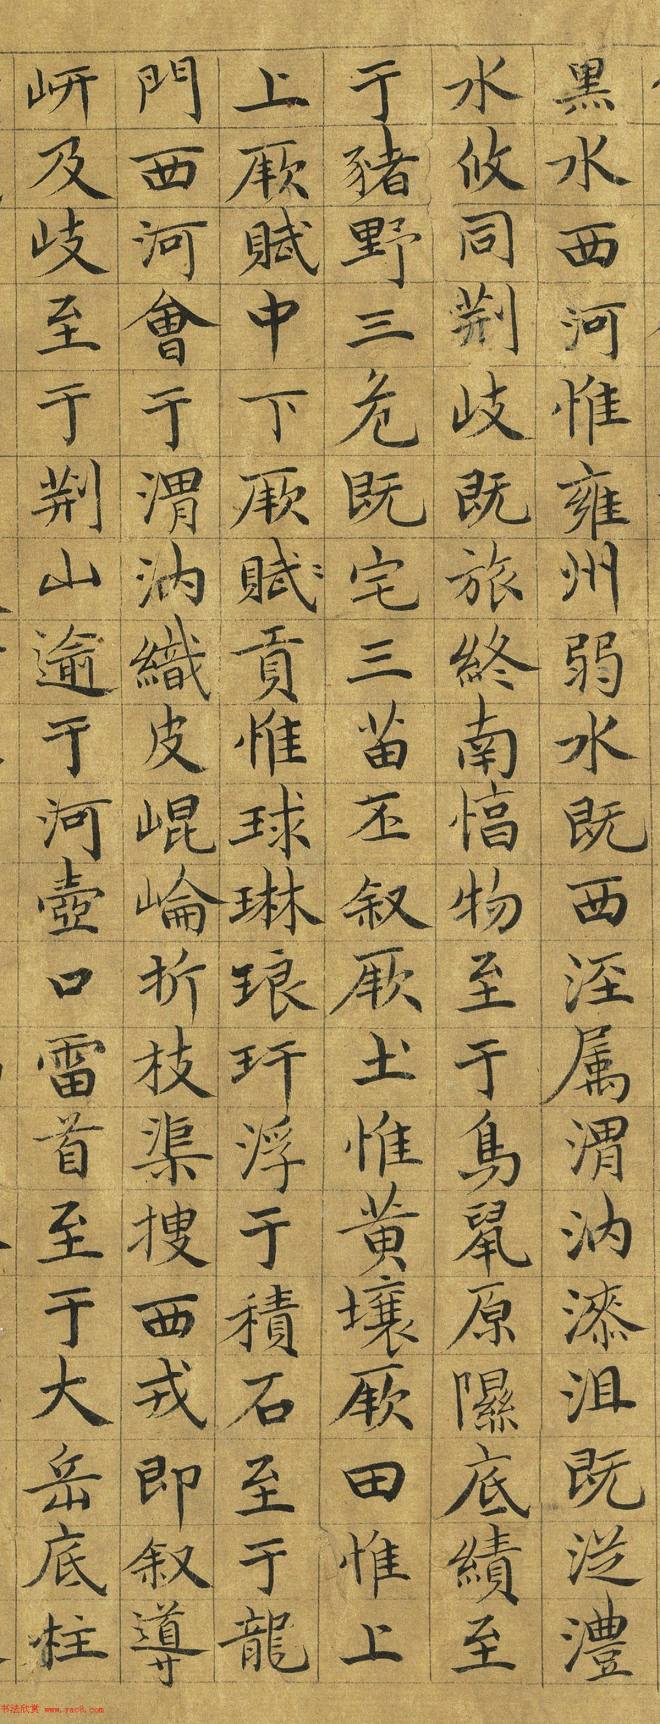 黑水西河惟雍州弱水既西涇属渭汭漆沮既従澧
水攸同荆岐既旅終南惇物至于鳥鼠原隰底績至
于豬野三危既宅三苗丕叙厥土惟黄壤厥田惟上
上厥賦中下厥賦貢惟球琳琅玕浮于積石至于龍
門西河會于渭汭織皮崐崘析枝渠搜西戎即叙導
岍及岐至于荆山逾于河壺口雷首至于大岳底柱
书法欣赏 www.yac8.com